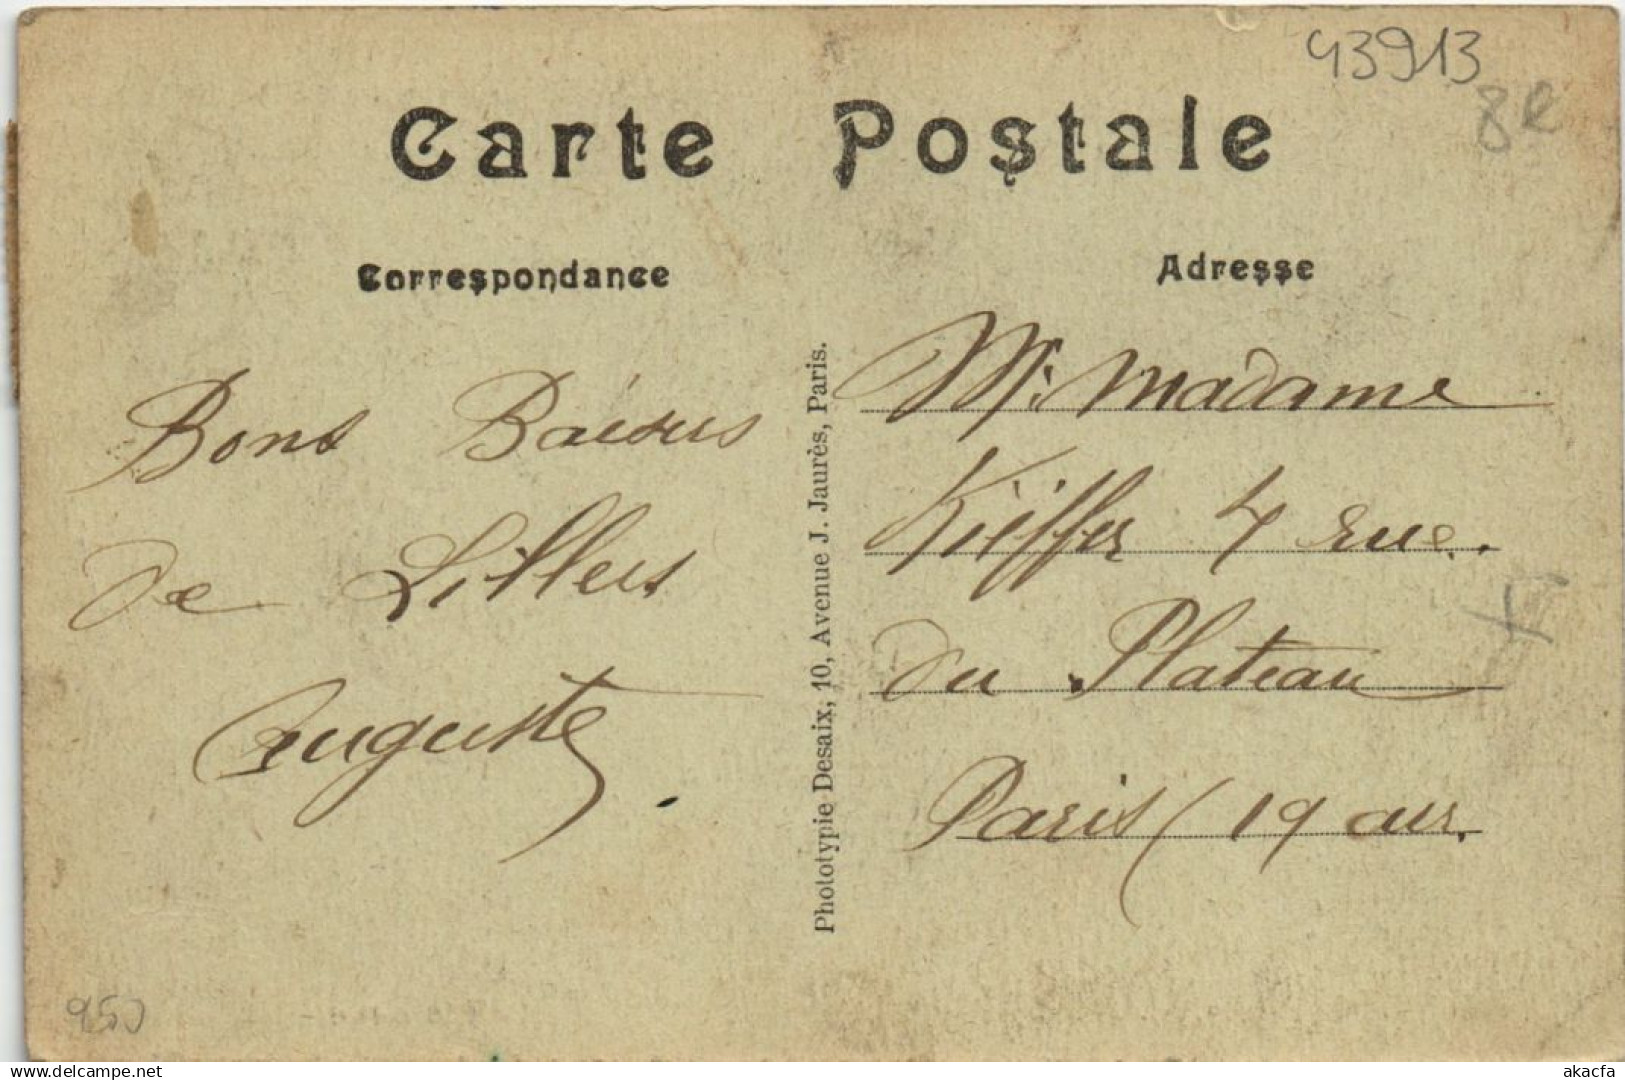 43913
Carte Postale
Correspondance
Adresse
Bons Baisers
de Lillers
Auguste.
Phototypie Desaix, 10, Avenue J. Jaurès, Paris.
Mr. Madame
Kieffer 4 rue.
du Plateau
Paris (19 arr.
950
delcampe.net
akacfa